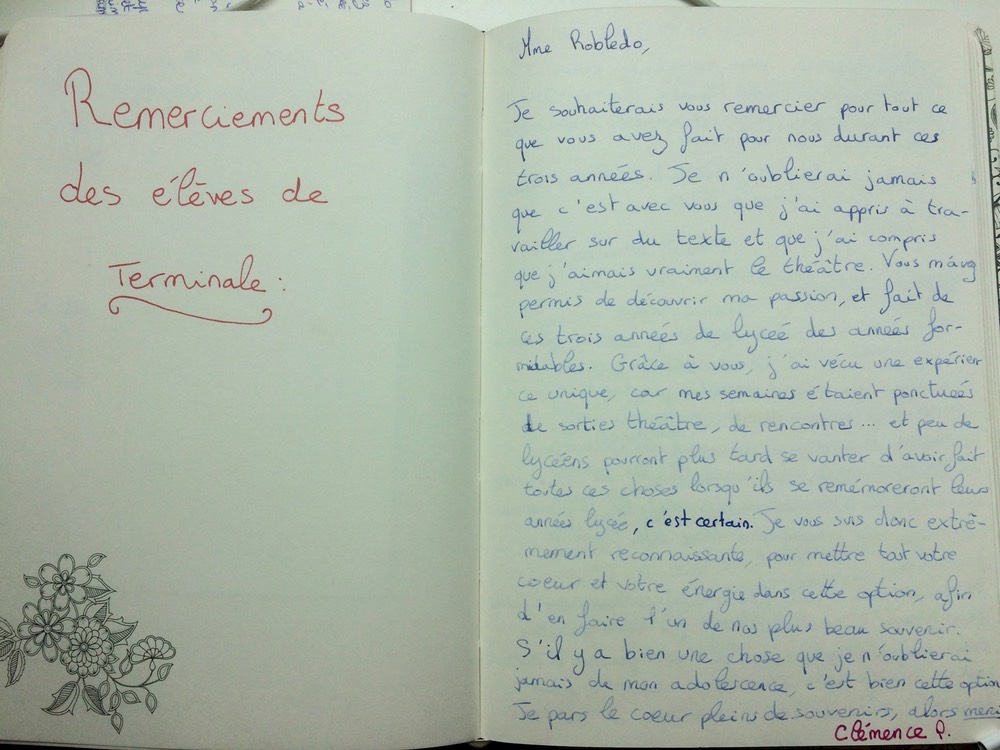 Remerciements
des élèves de
Terminale :
Mme Robledo,
Je souhaiterais vous remercier pour tout ce
que vous avez fait pour nous durant ces
trois années. Je n'oublierai jamais
que c'est avec vous que j'ai appris à tra-
vailler sur du texte et que j'ai compris
que j'aimais vraiment le théâtre. Vous m'avez
permis de découvrir ma passion, et fait de
ces trois années de lycée des années for-
midables. Grâce à vous, j'ai vécu une expérien
ce unique, car mes semaines étaient ponctuées
de sorties théâtre, de rencontres... et peu de
lycéens pourront plus tard se vanter d'avoir fait
toutes ces choses lorsqu'ils se remémoreront leurs
années lycée, c'est certain. Je vous suis donc extrê-
mement reconnaissante, pour mettre tout votre
coeur et votre énergie dans cette option, afin
d'en faire l'un de nos plus beau souvenir.
S'il y a bien une chose que je n'oublierai
jamais de mon adolescence, c'est bien cette option
Je pars le coeur pleins de souvenirs, alors merci
Clémence P.